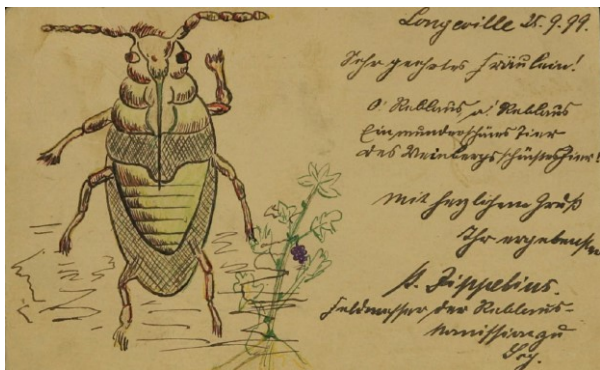 Longeville 25.9.99.
Sehr geehrtes Fräulein!
O' Reblaus, o' Reblaus
Ein wunderschönes Tier
des Weinbergs schönste Zier!
Mit herzlichem Gruß
Ihr ergebenster
Zippelius.
Feldmesser der Reblaus-
komission zu